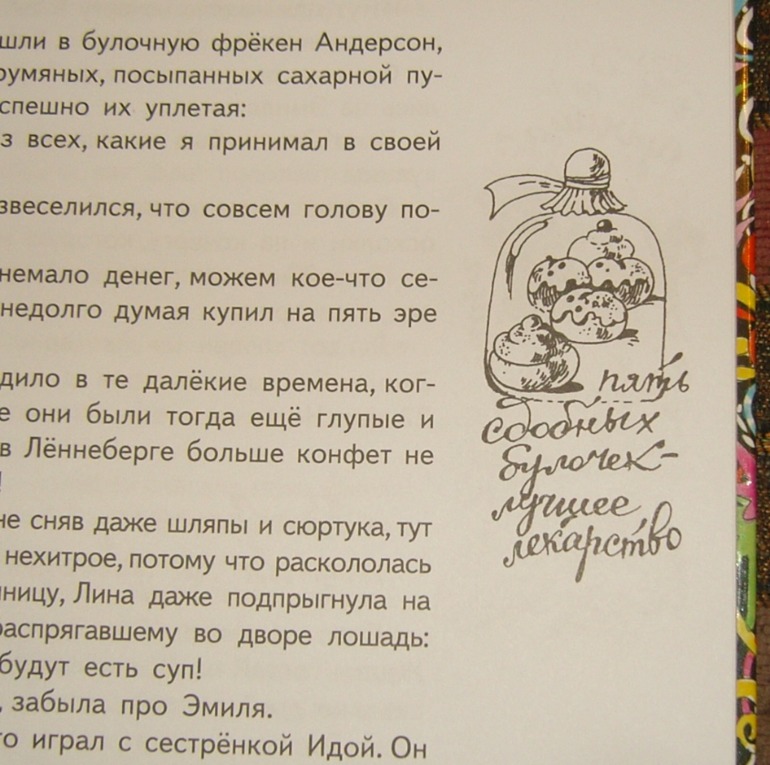 шли в булочную фрёкен Андерсон,
румяных, посыпанных сахарной пу-
спешно их уплетая:
з всех, какие я принимал в своей
звеселился, что совсем голову по-
немало денег, можем кое-что се-
недолго думая купил на пять эре
дило в те далёкие времена, ког-
е они были тогда ещё глупые и
в Лённеберге больше конфет не
!
не сняв даже шляпы и сюртука, тут
нехитрое, потому что раскололась
ницу, Лина даже подпрыгнула на
распрягавшему во дворе лошадь:
будут есть суп!
, забыла про Эмиля.
то играл с сестрёнкой Идой. Он
пять
сдобных
булочек-
лучшее
лекарство